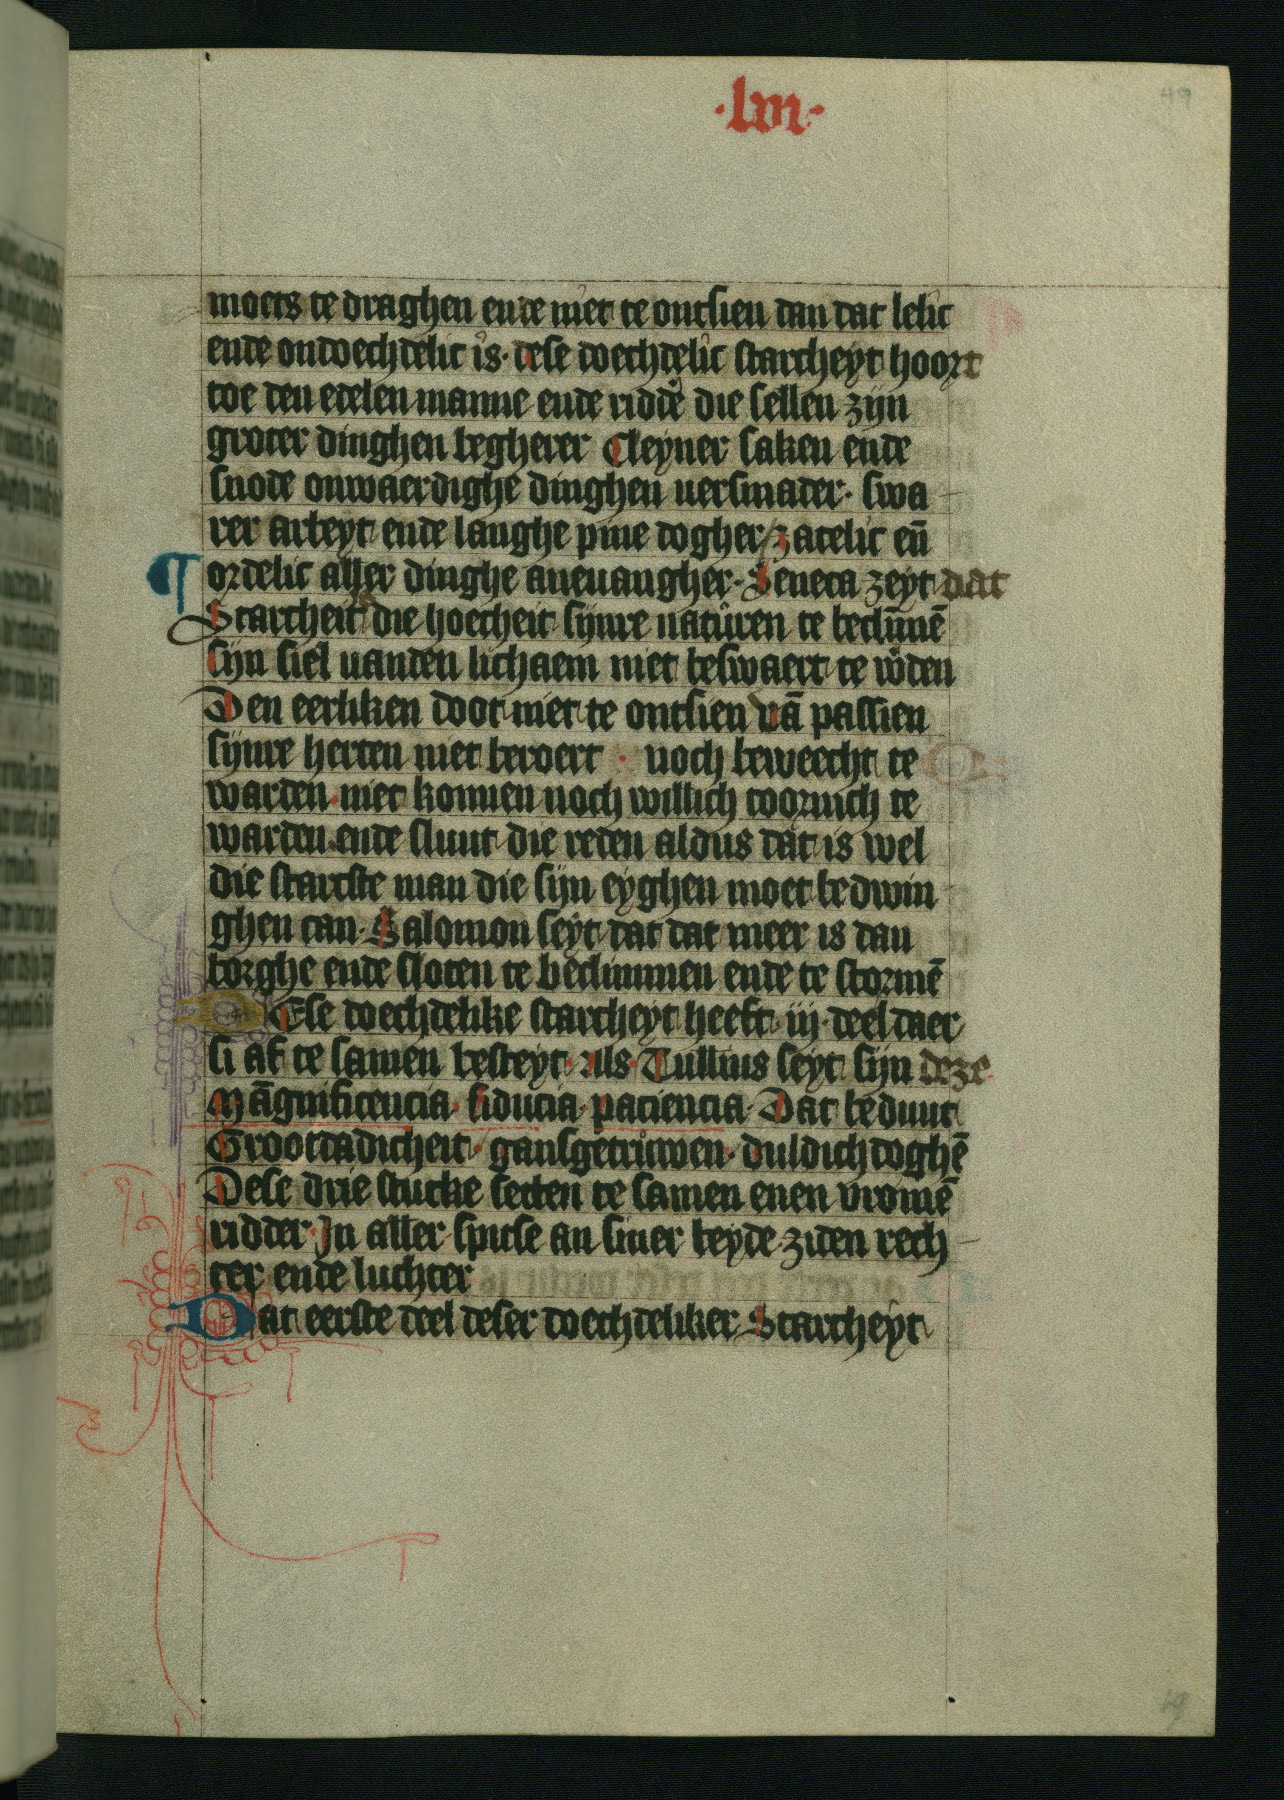 ·lııı·
49
moets te draghen ende niet te ontsien dan dat lelic
ende ondoechdelic is· dese doechdelic starcheyt hoort
toe den edelen manne ende ridder die sellen zijn
groter dinghen begherer Cleyner saken ende
snode onwaerdighe dinghen versmader· swa
rer arbeyt ende langhe pine dogher zatelic en̄
ordelic aller dinghe anevangher· Seneca zeyt dat
Starcheit die hoecheit sijnre naturen te beclimmē
sijn siel vanden lichaem niet beswaert te worden
Den eerliken doot niet te ontsien vā passien
sijnre herten niet beroert · noch beweecht te
warden· niet konnen noch willich toornich te
warden ende sluut die reden aldus dat is wel
die starcste man die sijn eyghen moet bedwin
ghen can· Salomon seyt dat dat meer is dan
borghe ende sloten te beclimmen ende te stormē
DEse doechdelike starcheyt heeft iij deel daer
si af te samen besteyt· Als· Tullius seyt sijn deze
Māgnificencia· fiducia· paciencia· Dat beduut
Grootdadicheit· gansgetruwen· duldich doghē
Dese drie stucke setten te samen enen vromē
ridder· In aller spitse an siner beyde ziden rech
ter ende luchter
Dat eerste deel deser doechdeliker Starcheyt